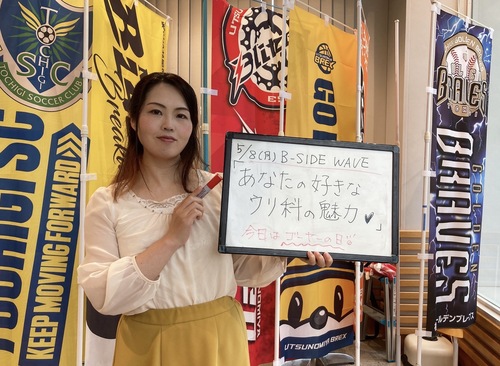 TOCHIGI SC
TOCHIGI SOCCER CLUB
TOCHIGI SC
KEEP MOVING FORWARD
Big
BREX
GO
UTSUNOMIYA BREX
5/8(月) B-SIDE WAVE
「あなたの好きな
ウリ科の魅力♥」
今日はゴーヤーの日
GOLDEN
BRAVES
GOLDEN BRAVES
ールデンブレーブス